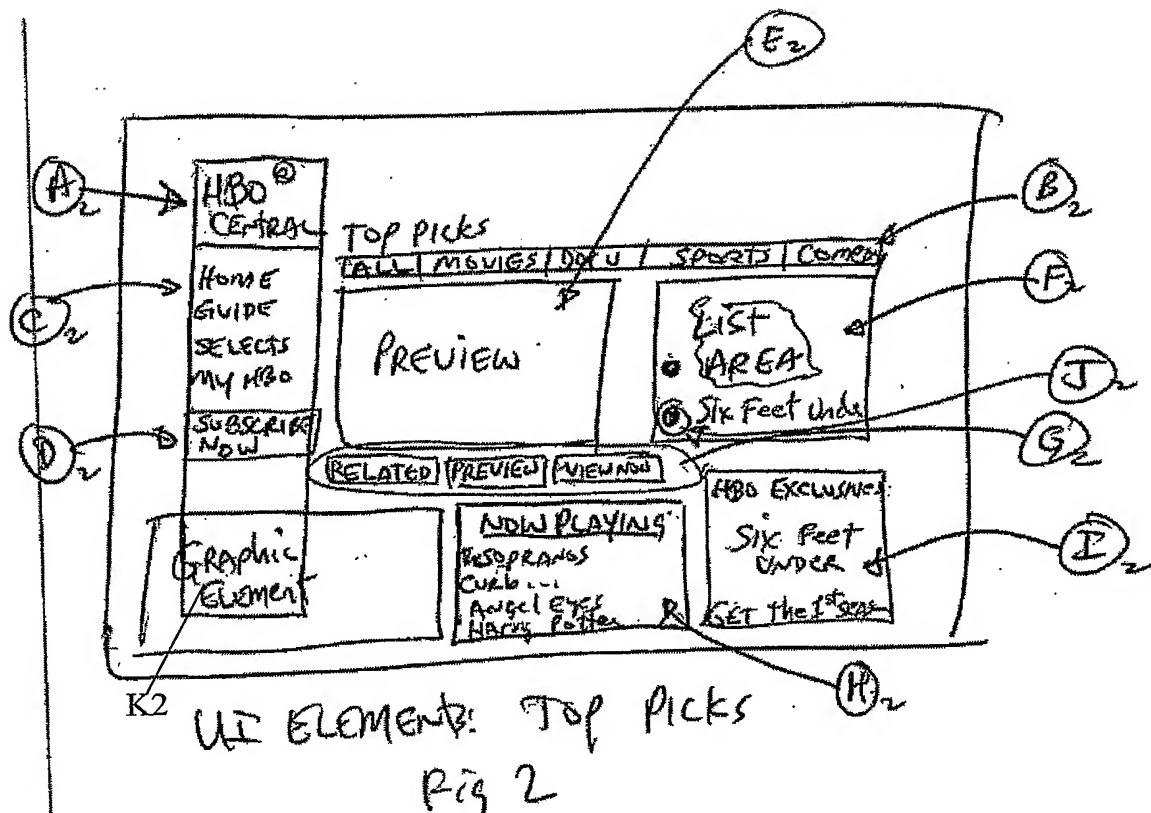 E2
A2
HBO
CENTRAL
B2
TOP PICKS
ALL | MOVIES | DOCU | SPORTS | COMEDY
C2
HOME
GUIDE
SELECTS
MY HBO
PREVIEW
LIST
AREA
F2
Six Feet Unde
J2
D2
SUBSCRIBE
NOW
G2
RELATED PREVIEW VIEW NOW
HBO EXCLUSIVES:
Six Feet
UNDER
GET the 1st SEAS
I2
NOW PLAYING
SOPRANOS
CURB...
ANGEL EYES
HARRY Potter
GRAPHIC
ELEMENT
H2
K2
UI ELEMENTS: TOP PICKS
Fig 2